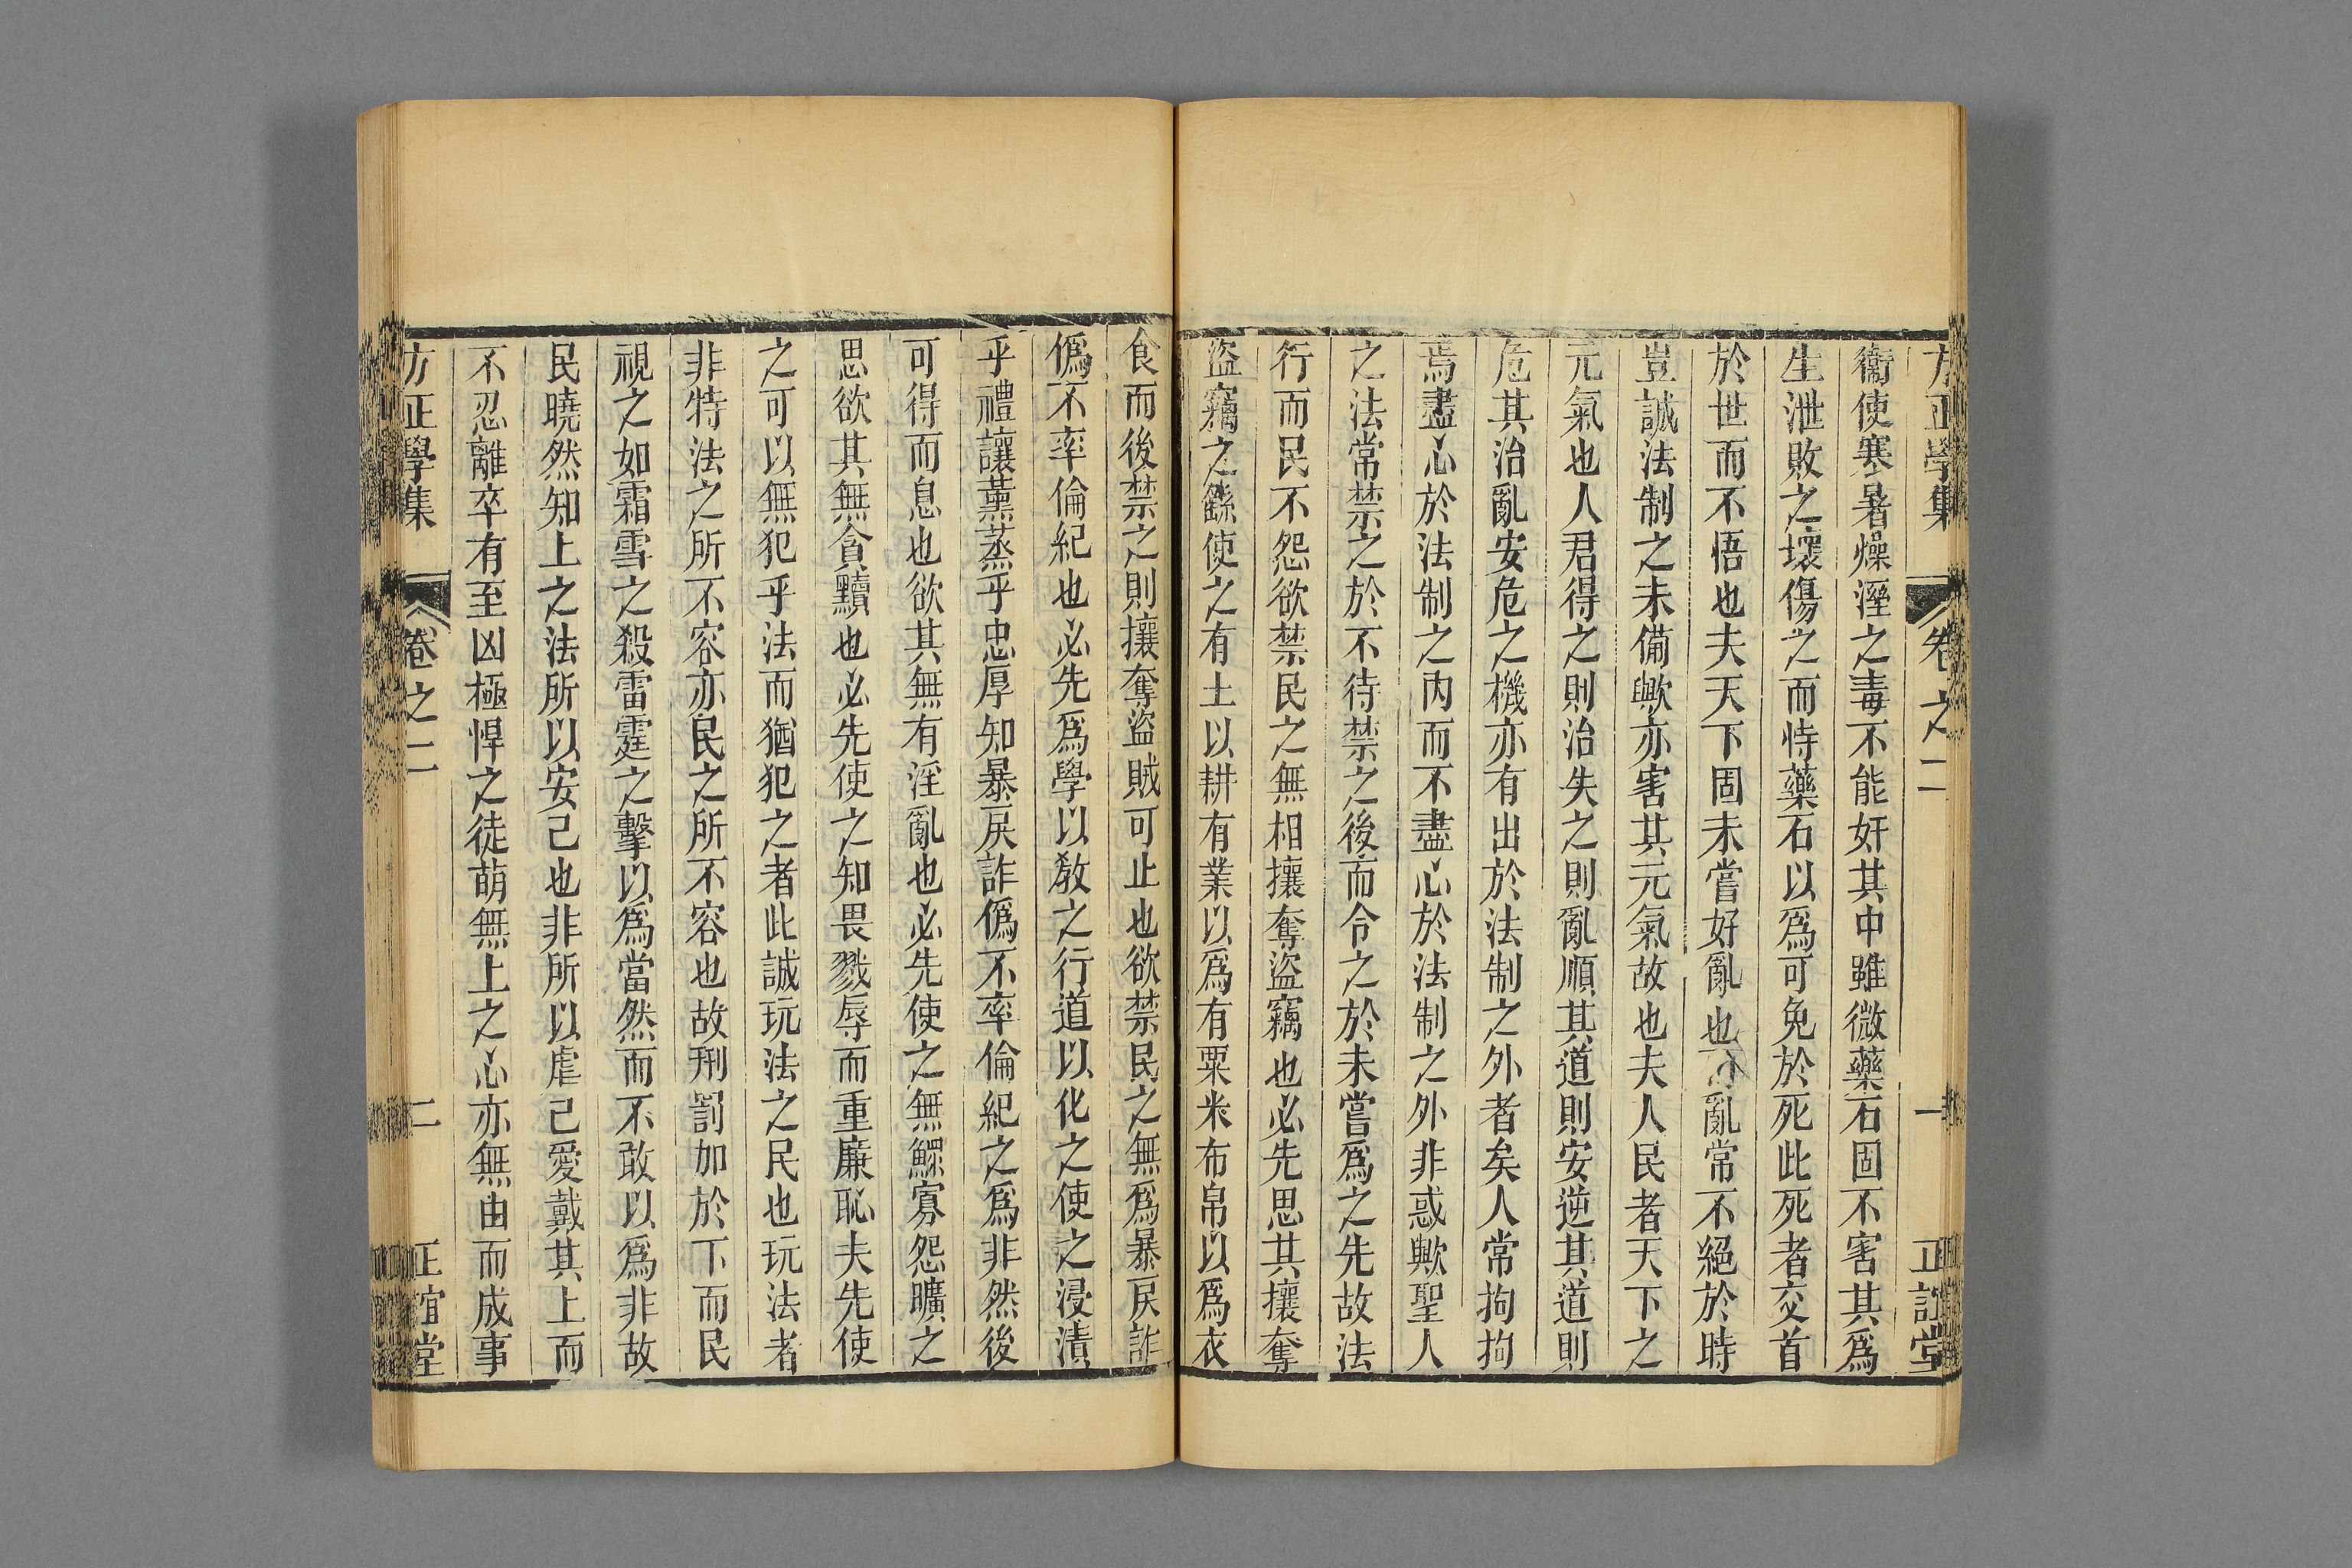 方正學集 卷之二 一 正誼堂
衞使寒暑燥溼之毒不能奸其中雖微藥石固不害其爲
生泄敗之壞傷之而恃藥石以爲可免於死此死者交首
於世而不悟也夫天下固未嘗好亂也而亂常不絕於時
豈誠法制之未備歟亦害其元氣故也夫人民者天下之
元氣也人君得之則治失之則亂順其道則安逆其道則
危其治亂安危之機亦有出於法制之外者矣人常拘拘
焉盡心於法制之內而不盡心於法制之外非惑歟聖人
之法常禁之於不待禁之後而令之於未嘗爲之先故法
行而民不怨欲禁民之無相攘奪盜竊也必先思其攘奪
盜竊之繇使之有土以耕有業以爲有粟米布帛以爲衣
食而後禁之則攘奪盜賊可止也欲禁民之無爲暴戾詐
僞不率倫紀也必先爲學以敎之行道以化之使之浸漬
乎禮讓薰蒸乎忠厚知暴戾詐僞不率倫紀之爲非然後
可得而息也欲其無有淫亂也必先使之無鰥寡怨曠之
思欲其無貪黷也必先使之知畏戮辱而重廉恥夫先使
之可以無犯乎法而猶犯之者此誠玩法之民也玩法者
非特法之所不容亦民之所不容也故刑罰加於下而民
視之如霜雪之殺雷霆之擊以爲當然而不敢以爲非故
民曉然知上之法所以安己也非所以虐己愛戴其上而
不忍離卒有至凶極悍之徒萌無上之心亦無由而成事
方正學集 卷之二 二 正誼堂